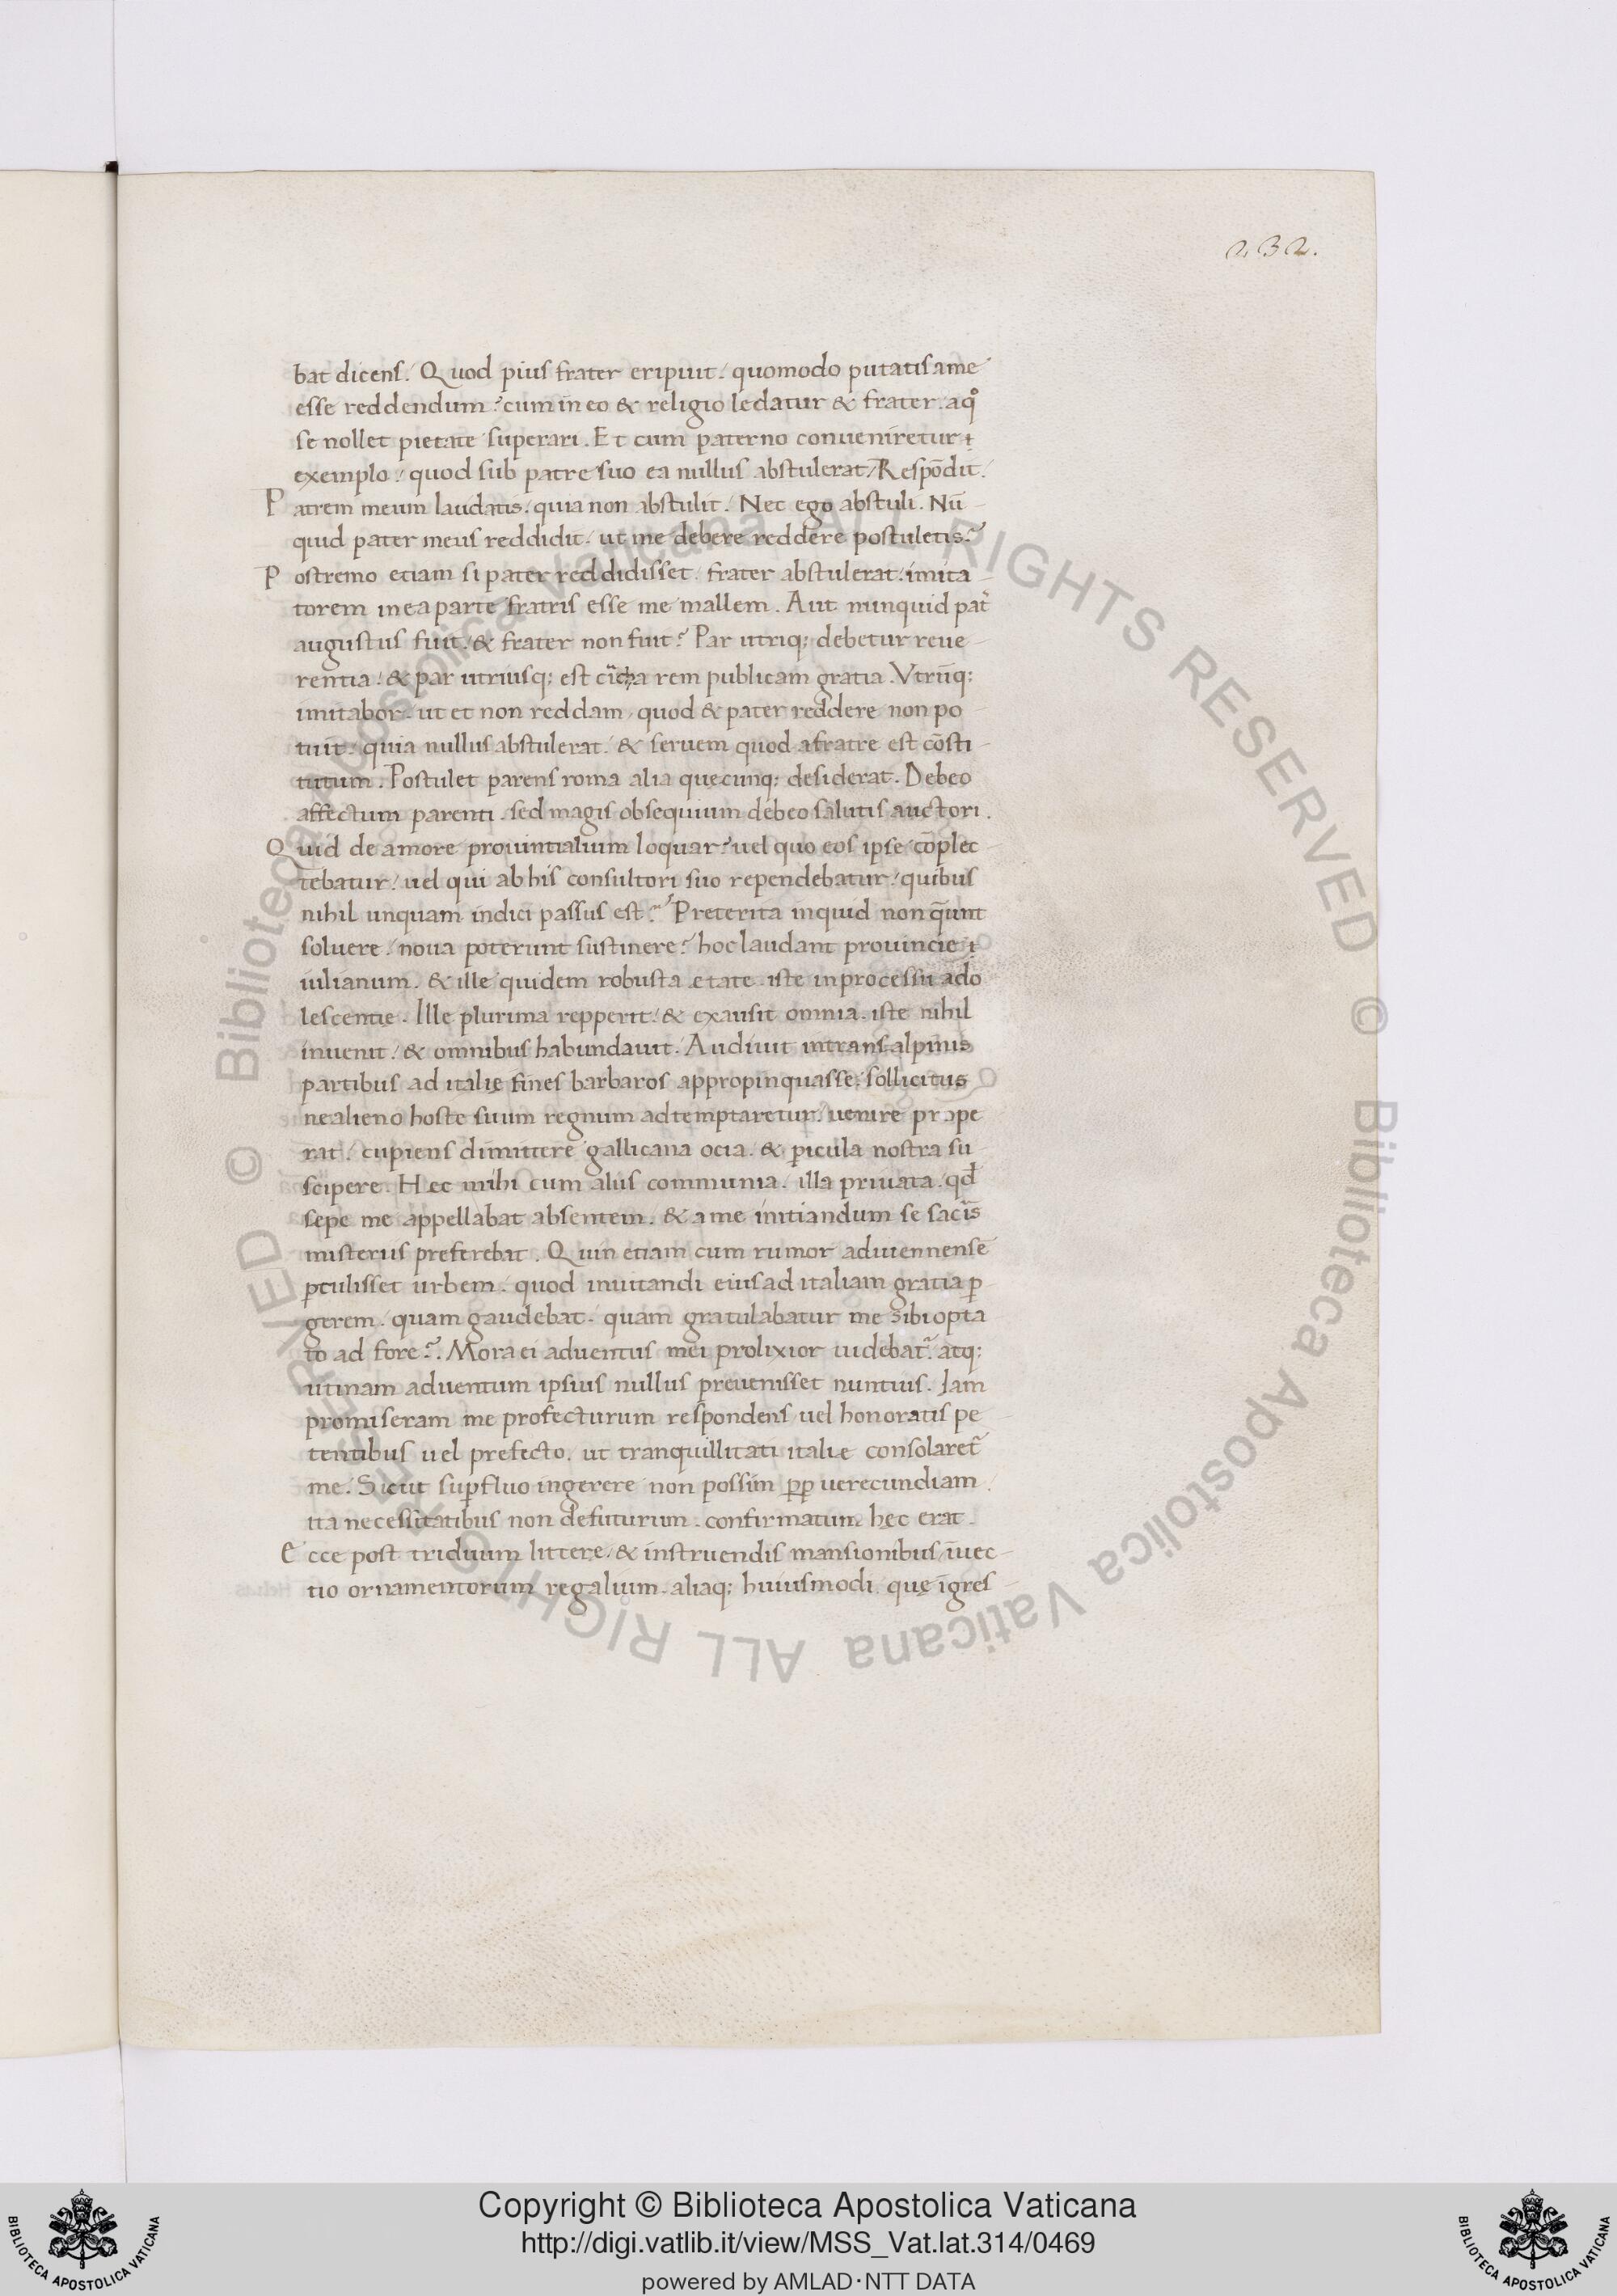 232.
bat dicens. Quod pius frater eripuit. quomodo putatis ame
esse reddendum? cum in eo & religio ledatur & frater. a qͦ
se nollet pietate superari. Et cum paterno conueniretur
exemplo. quod sub patre suo ea nullus abstulerat. Respōdit.
Patrem meum laudatis. quia non abstulit. Nec ego abstuli. Nū
quid pater meus reddidit. ut me debere reddere postuletis?
Postremo etiam si pater reddidisset. frater abstulerat. imita
torem in ea parte fratris esse me mallem. Aut nunquid pat̃
augustus fuit. & frater non fuit? Par utriq; debetur reue
rentia. & par utriusq; est rem publicam gratia. Vtrūq;
imitabor. ut et non reddam. quod & pater reddere non po
tuit. quia nullus abstulerat. & seruem quod a fratre est cōsti
tutum. Postulet parens roma alia quęcunq; desiderat. Debeo
affectum parenti. sed magis obsequium debeo salutis auctori.
Quid de amore prouintialium loquar? uel quo eos ipse cōplec
tebatur. uel qui ab his consultori suo rependebatur. quibus
nihil unquam indici passus est. Preterita inquid non q̄unt
soluere. noua poterunt sustinere? hoc laudant prouincie
iulianum. & ille quidem robusta etate. iste in processu ado
lescentie. Ille plurima repperit. & exausit omnia. iste nihil
inuenit. & omnibus habundauit. Audiuit in transalpinis
partibus ad italię fines barbaros appropinquasse. sollicitus
ne alieno hoste suum regnum adtemptaretur. uenire prope
rat. cupiens dimittere gallicana ocia. & p̲icula nostra su
scipere. Hec mihi cum aliis communia. illa priuata. qd̄
sepe me appellabat absentem. & a me initiandum se sacis̃
misteriis preferebat. Quin etiam cum rumor ad uiennensē
p̲culisset urbem. quod inuitandi eius ad italiam gratia p̲
gerem. quam gaudebat. quam gratulabatur me sibi opta
to ad fore?. Mora ei aduentus mei prolixior uidebat̃. atq;
utinam aduentum ipsius nullus preuenisset nuntius. Iam
promiseram me profecturum respondens uel honoratis pe
tentibus uel prefecto. ut tranquillitati italie consolaret̃
me. Sicut sup̲fluo ingerere non possim p̲p̲ uerecundiam.
ita necessitatibus non defuturum. confirmatum hęc erat.
Ecce post triduum littere. & instruendis mansionibus. īuec
tio ornamentorum regalium. aliaq; huiusmodi. quę īgres
Copyright © Biblioteca Apostolica Vaticana
http://digi.vatlib.it/view/MSS_Vat.lat.314/0469
powered by AMLAD·NTT DATA
BIBLIOTECA APOSTOLICA VATICANA
BIBLIOTECA APOSTOLICA VATICANA
© Biblioteca Apostolica Vaticana ALL RIGHTS RESERVED © Biblioteca Apostolica Vaticana ALL RIGHTS RESERVED